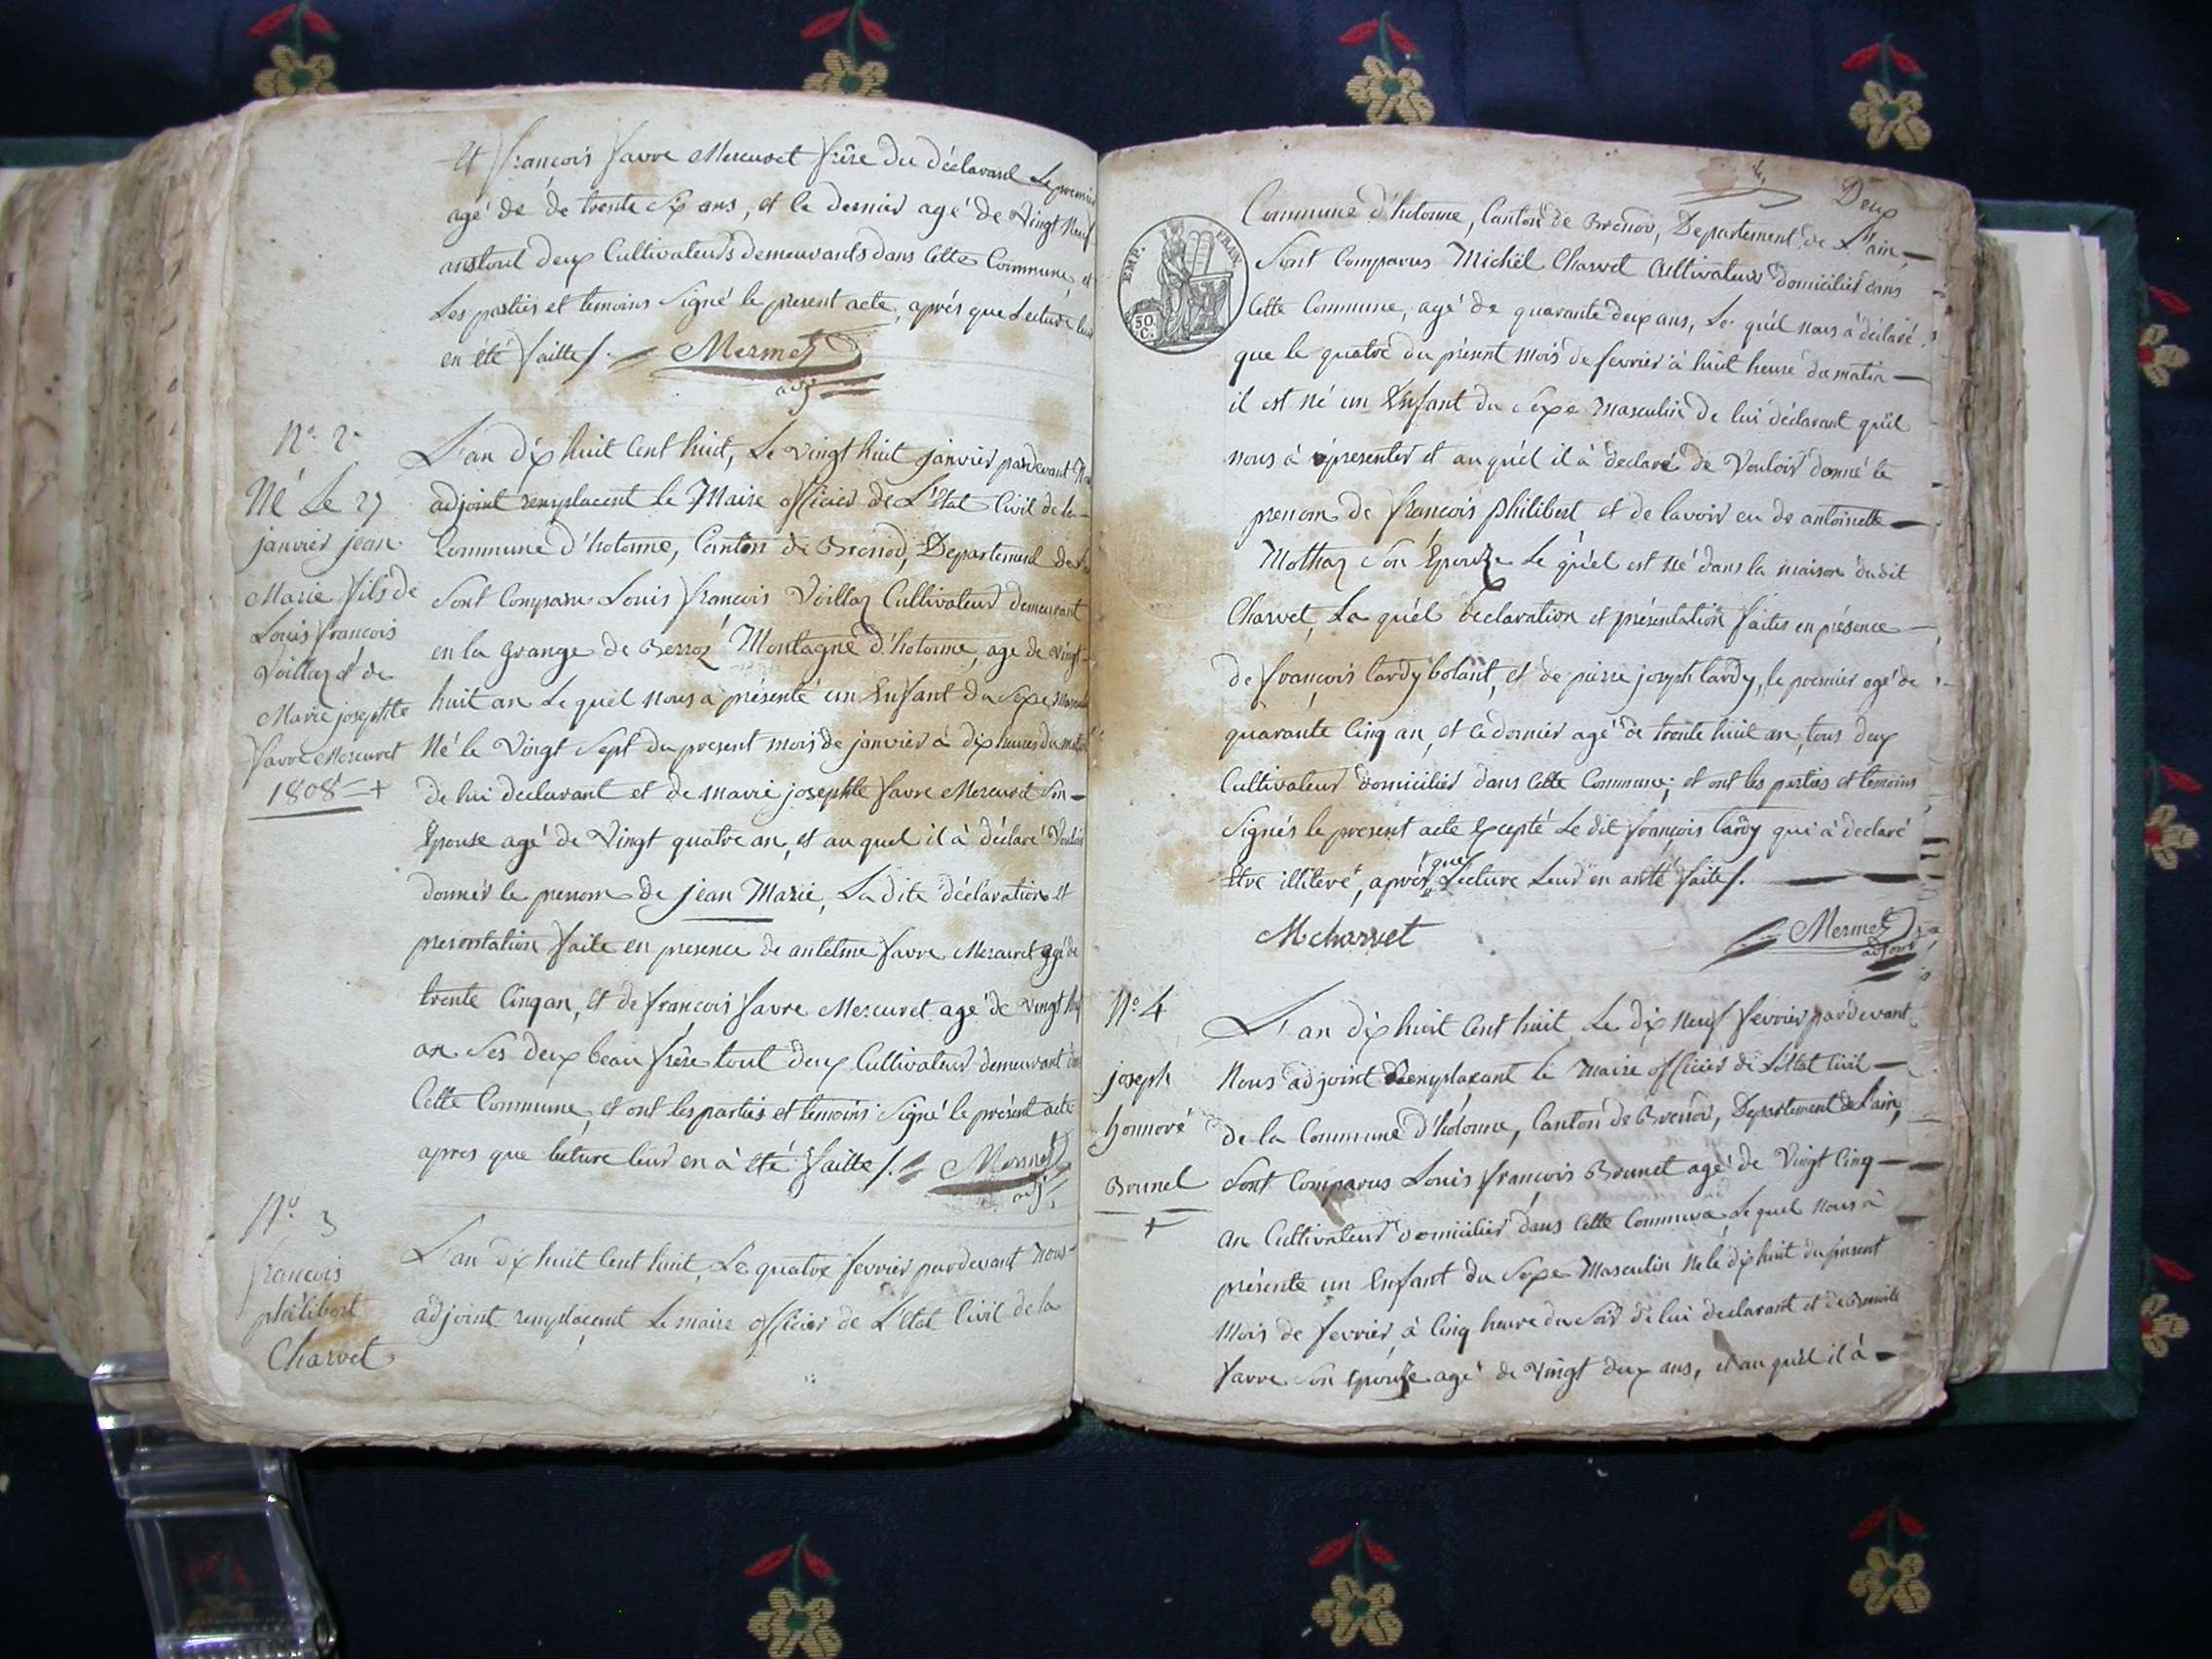 et françois favre Mercuret frère du déclarand Le premier
agé de de trente Six ans, et le dernier agé de Vingt Neuf
anstout deux Cultivateurs demeurants dans Cette Commune, et
Les parties et temoins Signé le present acte, après que Lecture leur
en été faitte/. Mermet
adj
N.° 2.
Né Le 27
janvier jean
Marie fils de
Louis françois
Voillaz et de
Marie josephte
favre Mercuret
1808 +
L'an dix huit Cent huit, Le vingt huit janvier pardevant
adjoint remplacent le Maire officier de L'Etat Civil de la
Commune d'hotonne, Canton de Brenod, Departement de
Sont Comparu Louis françois Voillaz Cultivateur demeurant
en la grange de Berroz Montagne d'hotonne, age de vingt
huit an Le quel nous a présenté un Enfant du Sexe
Né le Vingt Sept du present mois de janvier à dix heures du matin
de lui declarant et de marie josephte favre Mercuret Son
Epouse agé de Vingt quatre an, et au quel il à déclaré Vouloir
donner le prenom de jean Marie, La dite déclaration et
presentation faite en presence de antelme favre Mercuret agé de
trente Cinq an, Et de françois favre Mercuret agé de vingt
an Ses deux beau frère tout deux Cultivateur demeurant
Cette Commune, et ont les parties et temoins Signé le présent acte
apres que lecture leur en à été faitte/. Mermet
adj
N.° 3
françois
philibert
Charvet
L'an dix huit Cent huit, Le quatre fevrier pardevant Nous
adjoint remplacent Le maire officier de L'Etat Civil de la
Deux
EMP. FRAN.
50 C.
Commune d'hotonne, Canton de Brenod, Departement de L'ain,
Sont Comparus Michel Charvet Cultivateur domicilier dans
Cette Commune, agé de quarante deux ans, Le quel nous à déclaré
que le quatre du présent mois de fevrier à huit heure du matin
il est Né un Enfant du Sexe masculin de lui déclarant qu'il
nous à représenter et au quel il à declaré de Vouloir donné le
prenom de françois philibert et de lavoir eu de antoinette
Mothaz Son Epouse Le quel est Né dans la maison dudit
Charvet, La quel déclaration et présentation faites en présence
de françois tardy bolant, et de pierre joseph tardy, le premier agé de
quarante Cinq an, et le dernier agé de trente huit an, tous deux
Cultivateur domicilier dans Cette Commune, et ont les parties et temoins
Signés le present acte Excepté Le dit françois tardy qui à declaré
Etre illiteré, après que Lecture Leur en a été faite/.
MCharvet
Mermet
adjoint
N.° 4
joseph
honnoré
Brunet
+
L'an dix huit Cent huit Le dix Neuf fevrier pardevant
Nous adjoint Remplacant le Maire officier de L'Etat Civil
de la Commune d'hotonne, Canton de Brenod, Departement de L'ain,
Sont Comparus Louis françois Brunet agé de Vingt Cinq
an Cultivateur domicilier dans Cette Commune Le quel nous à
présente un Enfant du Sexe Masculin Né le dix huit du present
Mois de fevrier, à Cinq heure du Soir de lui declarant et de
favre Son Epouse agé de Vingt deux ans, et au quel il à